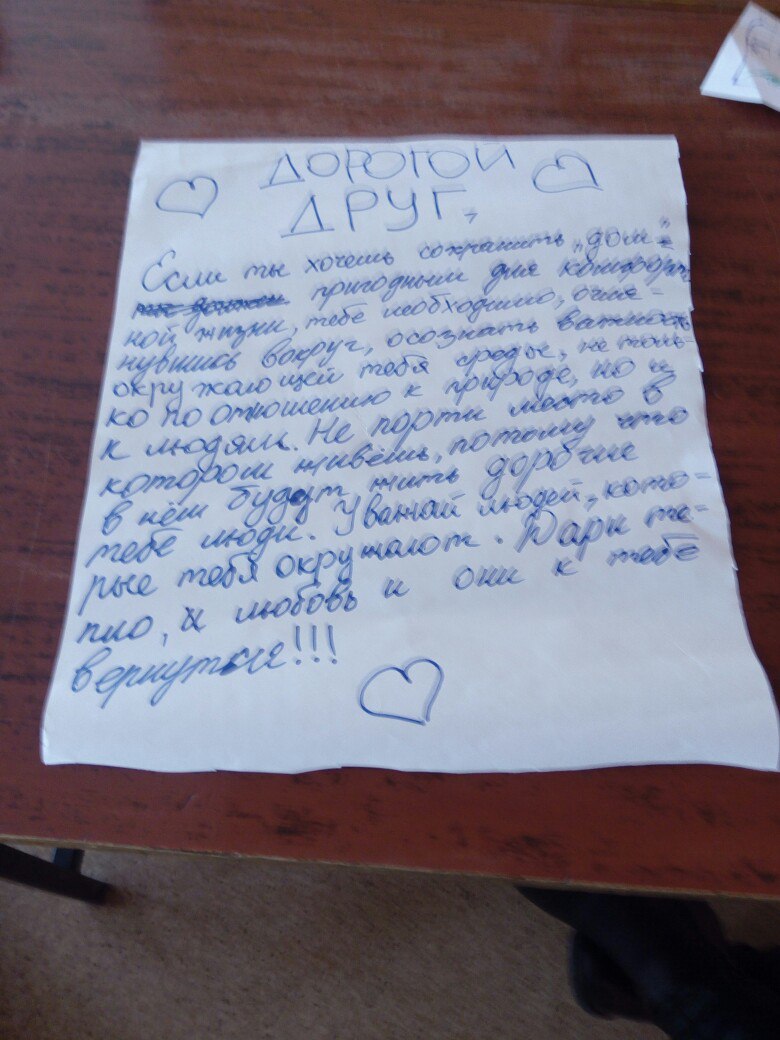 ДОРОГОЙ
ДРУГ,
Если ты хочешь сохранить „дом"
пригодным для комфорт-
ной жизни, тебе необходимо, огля-
нувшись вокруг, осознать важность
окружающей тебя среды, не толь-
ко по отношению к природе, но и
к людям. Не порти место в
котором живёшь, потому что
в нём будут жить доробие
тебе люди. Уважай людей, кото-
рые тебя окружают. Дари те-
пло, и любовь и они к тебе
вернутся!!!